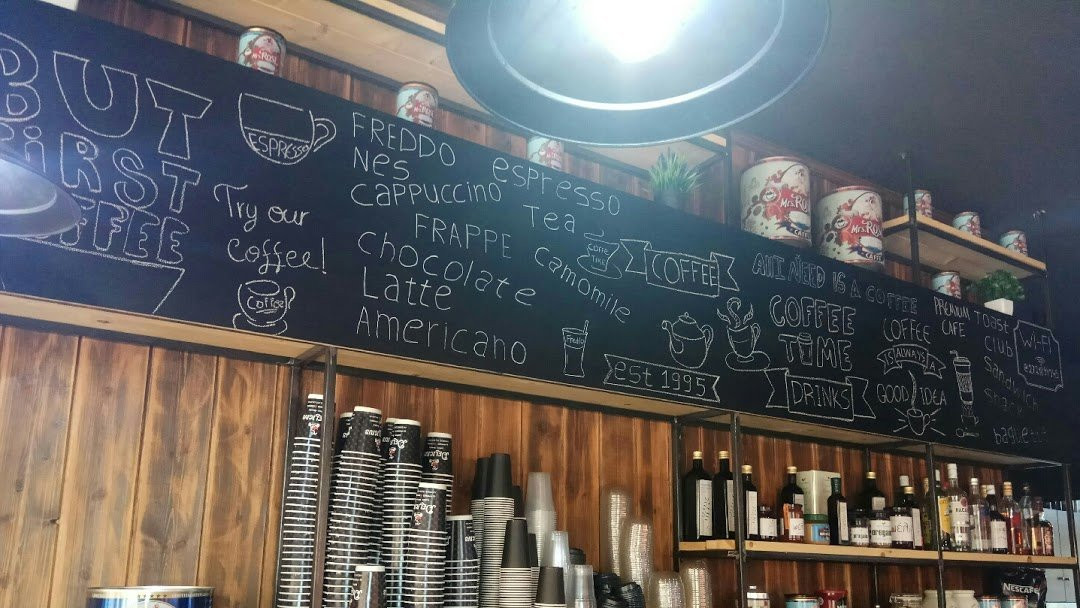 BUT
FiRST
COFFEE
ESPRESSO
Try our
coffee!
Coffee
FREDDO espresso
Nes
cappuccino
Tea
FRAPPE
Camomile
chocolate
Latte
Americano
COFFEE
est 1995
All NEED IS A COFFEE
COFFEE
TIME
DRINKS
COFFEE
IS ALWAYS
GOOD IDEA
PREMIUM
CAFE
Toast
club
Wi-Fi
NESCAFÉ